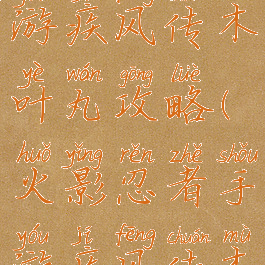 游疾风传木
yè wán gōng lüè
叶丸攻略(
huǒ yǐng rěn zhě shǒu
火影忍者手
yóu jí fēng chuán mù
游疾风传木